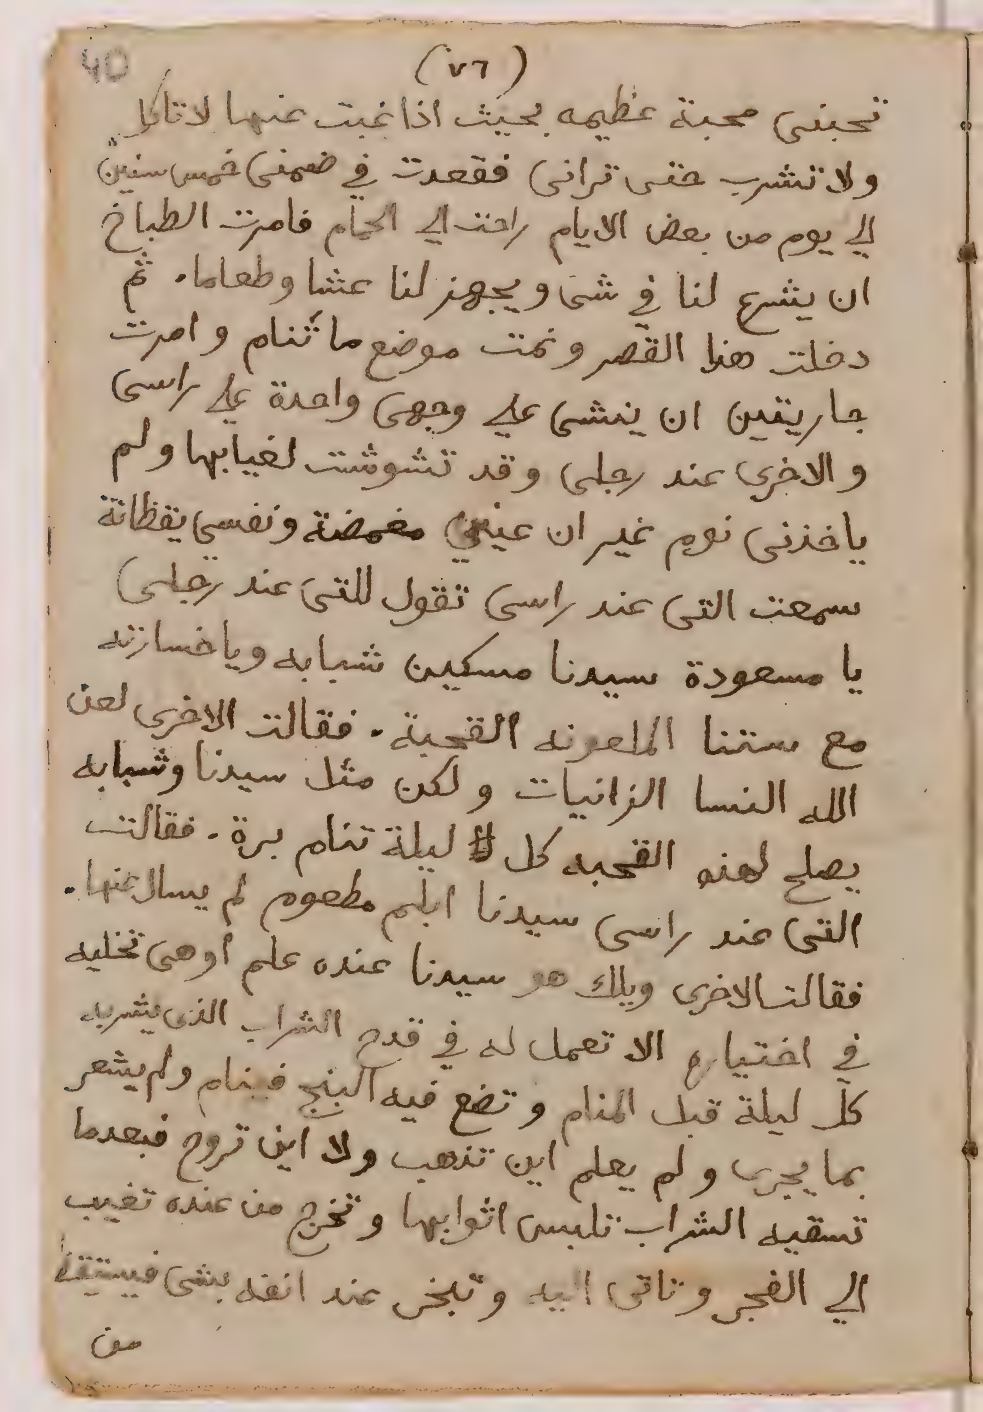 40
(٧٦)
تحبنى محبة عظيمه بحيث اذا غبت عنها لا تاكل
ولا تشرب حتى ترانى فقعدت في ضمنى خمس سنين
الي يوم من بعض الايام راحت الي الحمام فامرت الطباخ
ان يشرع لنا في شى ويجهز لنا عشا وطعاما. ثم
دخلت هذا القصر ونمت موضع ما تنام وامرت
جاريتين ان ينشى علي وجهى واحدة علي راسى
والاخرى عند رجلى وقد تشوشت لغيابها ولم
ياخذنى نوم غير ان عينى مغمضة ونفسى يقظانة
سمعت التى عند راسى تقول للتى عند رجلى
يا مسعودة سيدنا مسكين شبابه ويا خسارته
مع ستنا الملعونه القحبة. فقالت الاخرى لعن
الله النسا الزانيات ولكن مثل سيدنا وشبابه
يصلح لهذه القحبه كل # ليلة تنام برة. فقالت
التى عند راسى سيدنا ابلم مطعوم لم يسال عنها.
فقالت الاخرى ويلك هو سيدنا عنده علم أوهى تخليه
في اختياره الا تعمل له في قدح الشراب الذى يشربه
كل ليلة قبل المنام وتضع فيه البنج فينام ولم يشعر
بما يجرى ولم يعلم اين تذهب ولا اين تروح فبعدما
تسقيه الشراب تلبس اثوابها وتخرج من عنده تغيب
الي الفجر وتاتى اليه وتبخر عند انفه بشى فيستيقظ
من